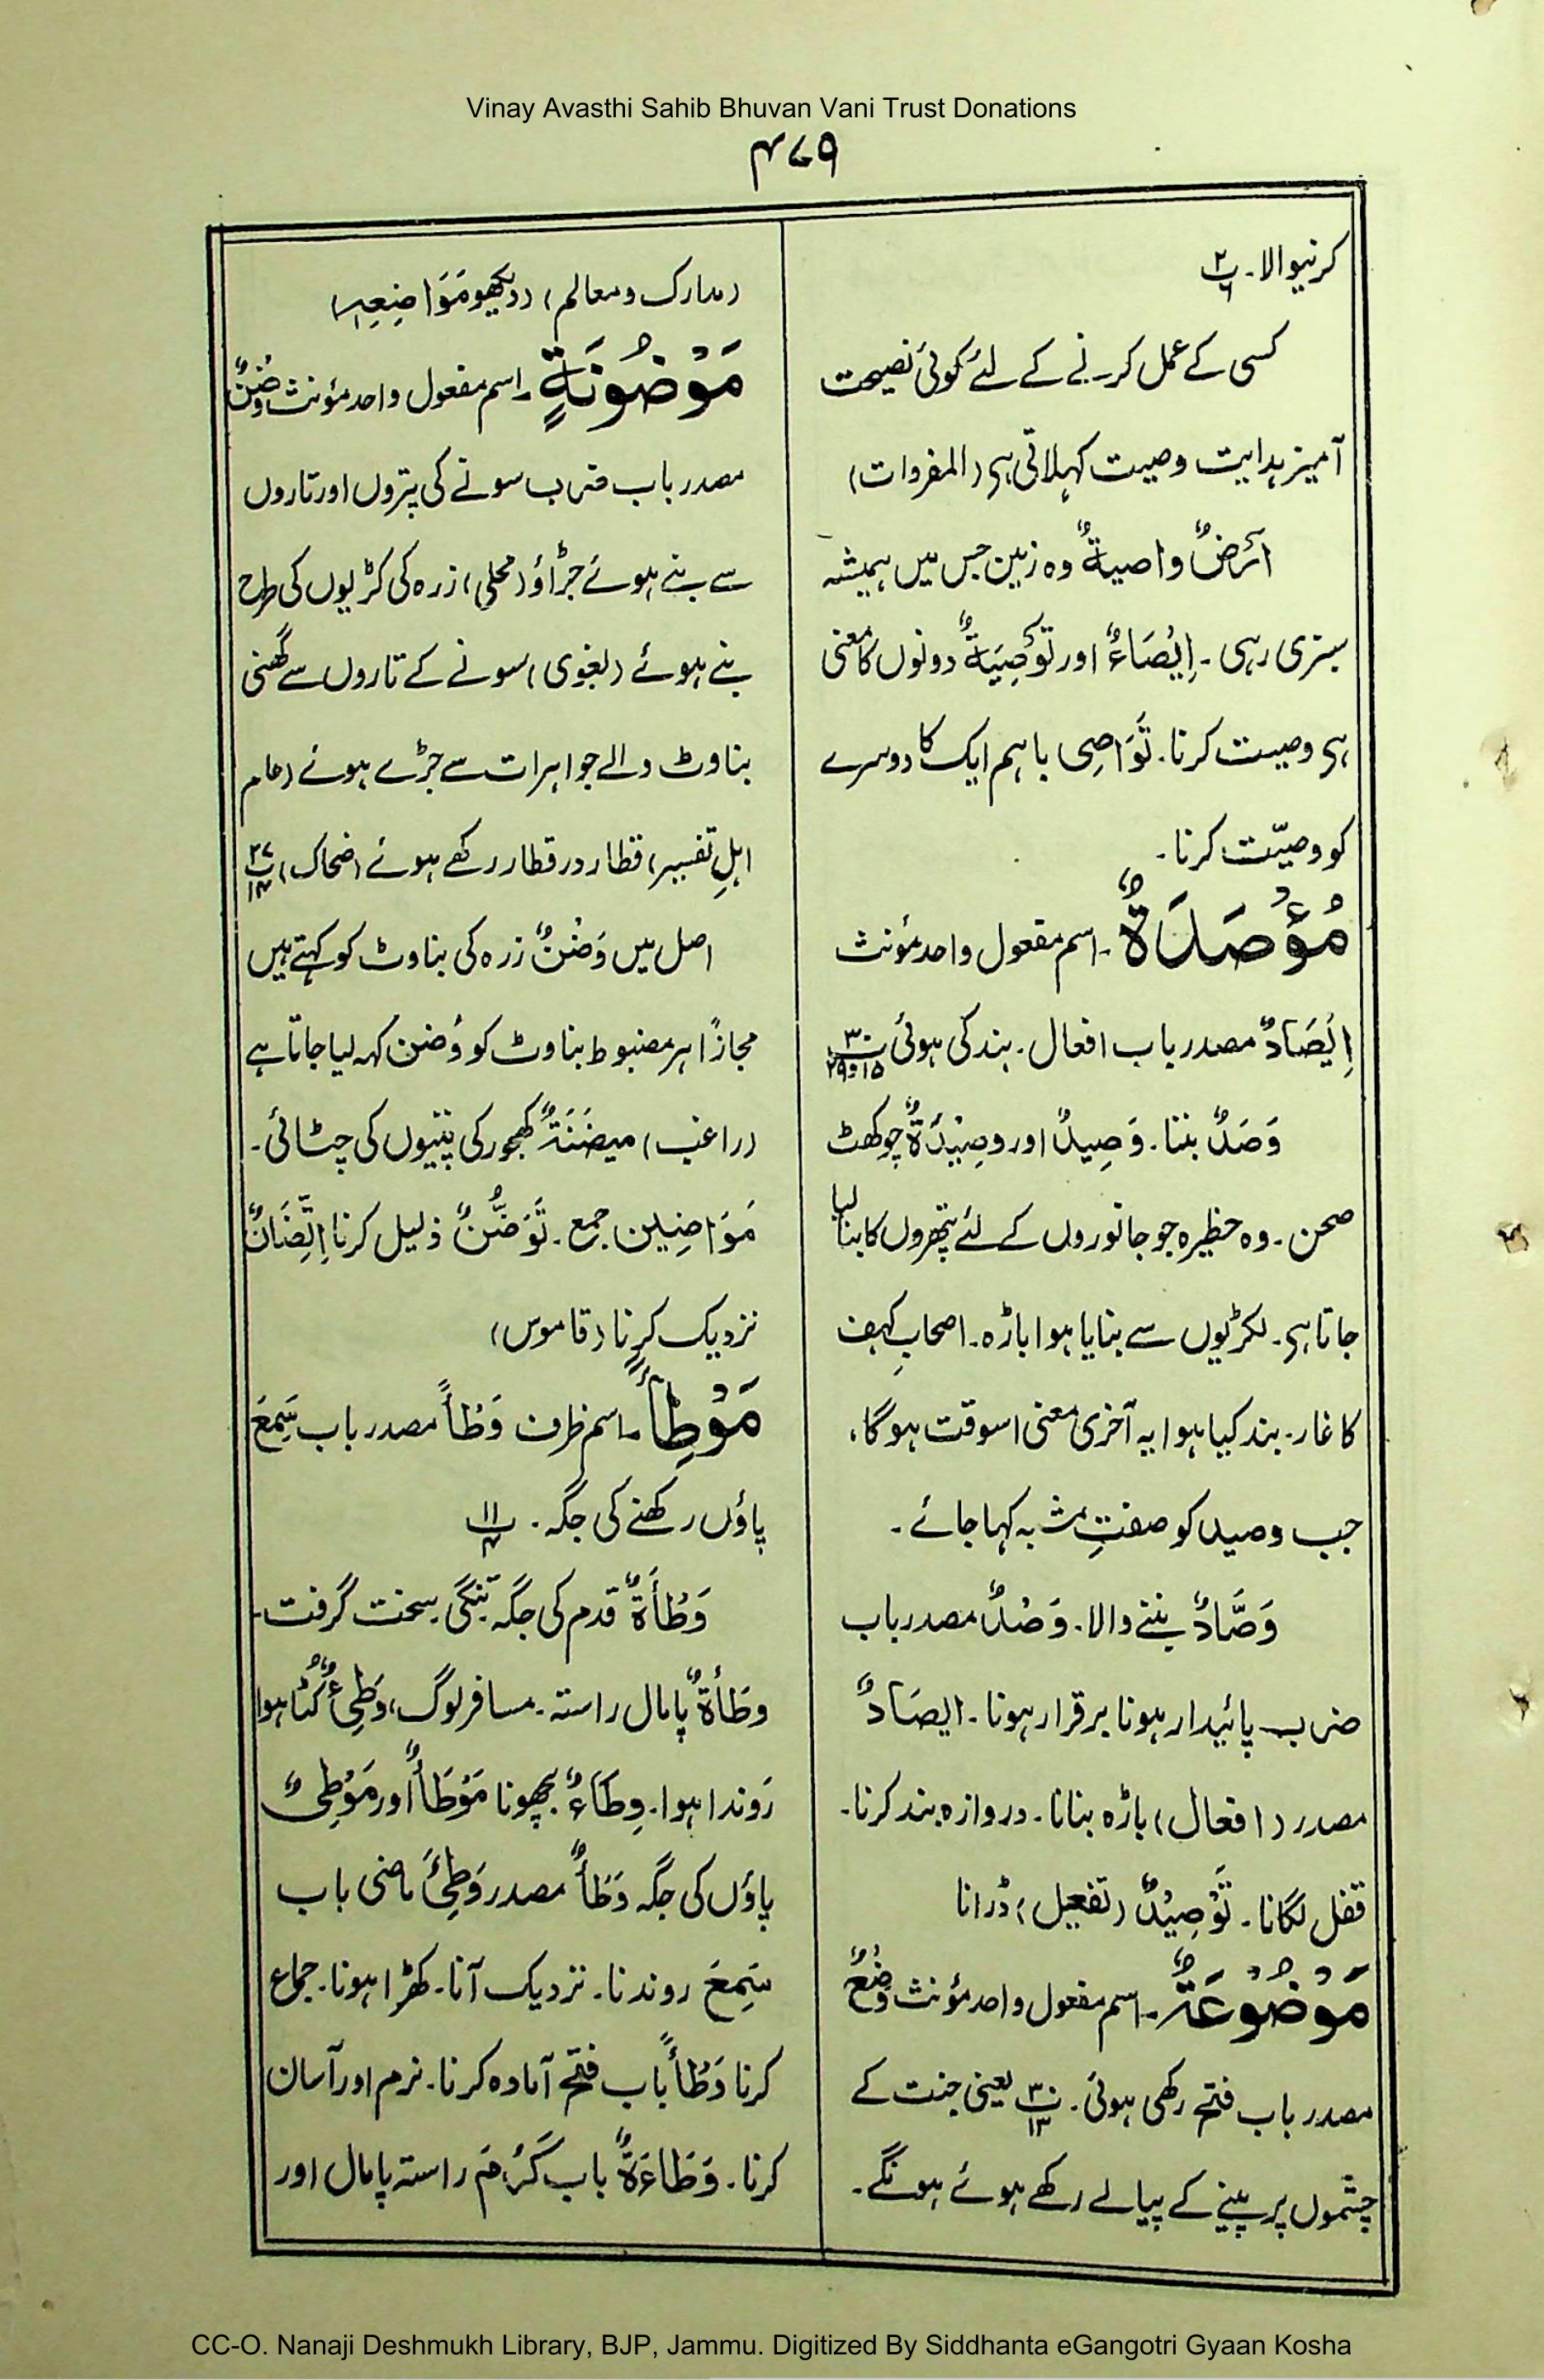 Vinay Avasthi Sahib Bhuvan Vani Trust Donations
۴۷۹
کرنیوالا۔ پ۲/۶
کسی کے عمل کرنے کے لئے کوئی نصیحت
آمیز ہدایت وصیت کہلاتی ہی (المفردات)
اَرْضٌ واصیۃٌ وہ زمین جس میں ہمیشہ
سبزی رہی۔ اِیْصَاءٌ اور تَوْصِیَۃٌ دونوں کا معنی
ہی وصیت کرنا۔ تَوَاصِی باہم ایک کا دوسرے
کو وصیّت کرنا۔
مُؤْصَدَۃٌ۔ اسم مفعول واحد مؤنث
اِیْصَادٌ مصدر باب افعال۔ بند کی ہوئی پ۳۰/۱۵و۲۹
وَصَدٌ بننا۔ وَصِیدٌ اور وصِیْدَۃٌ چوکھٹ
صحن۔ وہ حظیرہ جو جانوروں کے لئے پتھروں کا بنا لیا
جاتا ہی۔ لکڑیوں سے بنایا ہوا باڑہ۔ اصحابِ کہف
کا غار۔ بند کیا ہوا یہ آخری معنی اسوقت ہوگا،
جب وصید کو صفتِ مشبہ کہا جائے۔
وَصَّادٌ بننے والا۔ وَصْدٌ مصدر باب
ضرب پائیدار ہونا برقرار ہونا۔ ایصَادٌ
مصدر (افعال) باڑہ بنانا۔ دروازہ بند کرنا۔
قفل لگانا۔ تَوْصِیْدٌ (تفعیل) ڈرانا
مَوْضُوْعَۃٌ۔ اسم مفعول واحد مؤنث وَضْعٌ
مصدر باب فتح رکھی ہوئی۔ پ۳۰/۱۳ یعنی جنت کے
چشموں پر پینے کے پیالے رکھے ہوئے ہونگے۔
(مدارک ومعالم) (دیکھو مَوَاضِعِہٖ)
مَوْضُوْنَۃٍ۔ اسم مفعول واحد مؤنث وَضْنٌ
مصدر باب ضرب سونے کی پتروں اور تاروں
سے بنے ہوئے جڑاؤ (محلی) زرہ کی کڑیوں کی طرح
بنے ہوئے (بغوی) سونے کے تاروں سے گھنی
بناوٹ والے جواہرات سے جڑے ہوئے (عام
اہلِ تفسیر) قطار در قطار رکھے ہوئے (ضحاک) پ۲۷/۱۴
اصل میں وَضْنٌ زرہ کی بناوٹ کو کہتے ہیں
مجازًا ہر مضبوط بناوٹ کو وُضن کہہ لیا جاتا ہے
(راغب) میضَنَۃٌ کھجور کی پتیوں کی چٹائی۔
مَوَاضِین جمع۔ تَوَضُّنٌ ذلیل کرنا اِتِّضَانٌ
نزدیک کرنا (قاموس)
مَوْطِأً۔ اسم ظرف وَطْأً مصدر باب سَمِعَ
پاؤں رکھنے کی جگہ۔ پ۱۱/۴
وَطْأَۃٌ قدم کی جگہ تنگی سخت گرفت۔
وطَأۃٌ پامال راستہ۔ مسافر لوگ، وَطِیْءٌ کٹا ہوا
رَوندا ہوا۔ وِطَاءٌ بچھونا مَوْطَأٌ اور مَوْطِئٌ
پاؤں کی جگہ وَطَأٌ مصدر وَطِئَ ماضی باب
سَمِعَ روندنا۔ نزدیک آنا۔ کھڑا ہونا۔ جماع
کرنا وَطْأً باب فتح آمادہ کرنا۔ نرم اور آسان
کرنا۔ وَطَاءَۃٌ باب کَرُمَ راستہ پامال اور
CC-O. Nanaji Deshmukh Library, BJP, Jammu. Digitized By Siddhanta eGangotri Gyaan Kosha